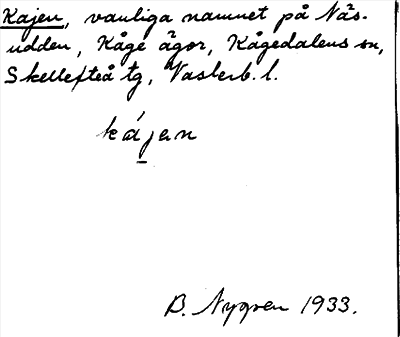 Kajen, vanliga namnet på Näs-
udden, Kåge ägor, Kågedalens sn,
Skellefteå tg, Vasterb. l.
kájen
B. Nygren 1933.